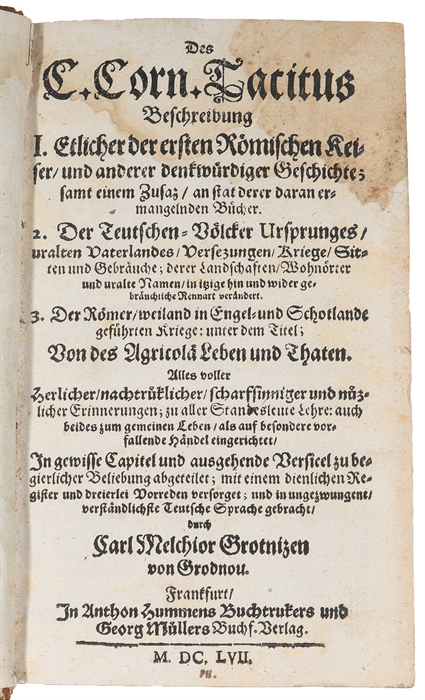 Des
C. Corn. Tacitus
Beschreibung
I. Etlicher der ersten Römischen Kei-
ser/ und anderer denkwürdiger Geschichte;
samt einem Zusaz/ an stat derer daran er-
mangelnden Bücher.
2. Der Teutschen-Völcker Ursprunges/
uralten Vaterlandes/ Versezungen/ Kriege/ Sit-
ten und Gebräuche; derer Landschaften/ Wohnörter
und uralte Namen/ in itzige hin und wider ge-
bräuchliche Nennart verändert.
3. Der Römer/ weiland in Engel- und Schotlande
geführten Kriege: unter dem Titel;
Von des Agricolä Leben und Thaten.
Alles voller
Herlicher/ nachtrüklicher/ scharfsinniger und nüz-
licher Erinnerungen; zu aller Standesleute Lehre: auch
beides zum gemeinen Leben/ als auf besondere vor-
fallende Händel eingerichtet/
In gewisse Capitel und ausgehende Versicel zu be-
gierlicher Beliebung abgeteilet; mit einem dienlichen Re-
gister und dreierlei Vorreden versorget; und in ungezwungene/
verständlichste Teutsche Sprache gebracht/
durch
Carl Melchior Grotnizen
von Grodnou.
Frankfurt/
In Anthon Hummens Buchtrukers und
Georg Müllers Buchf. Verlag.
M. DC. LVII.